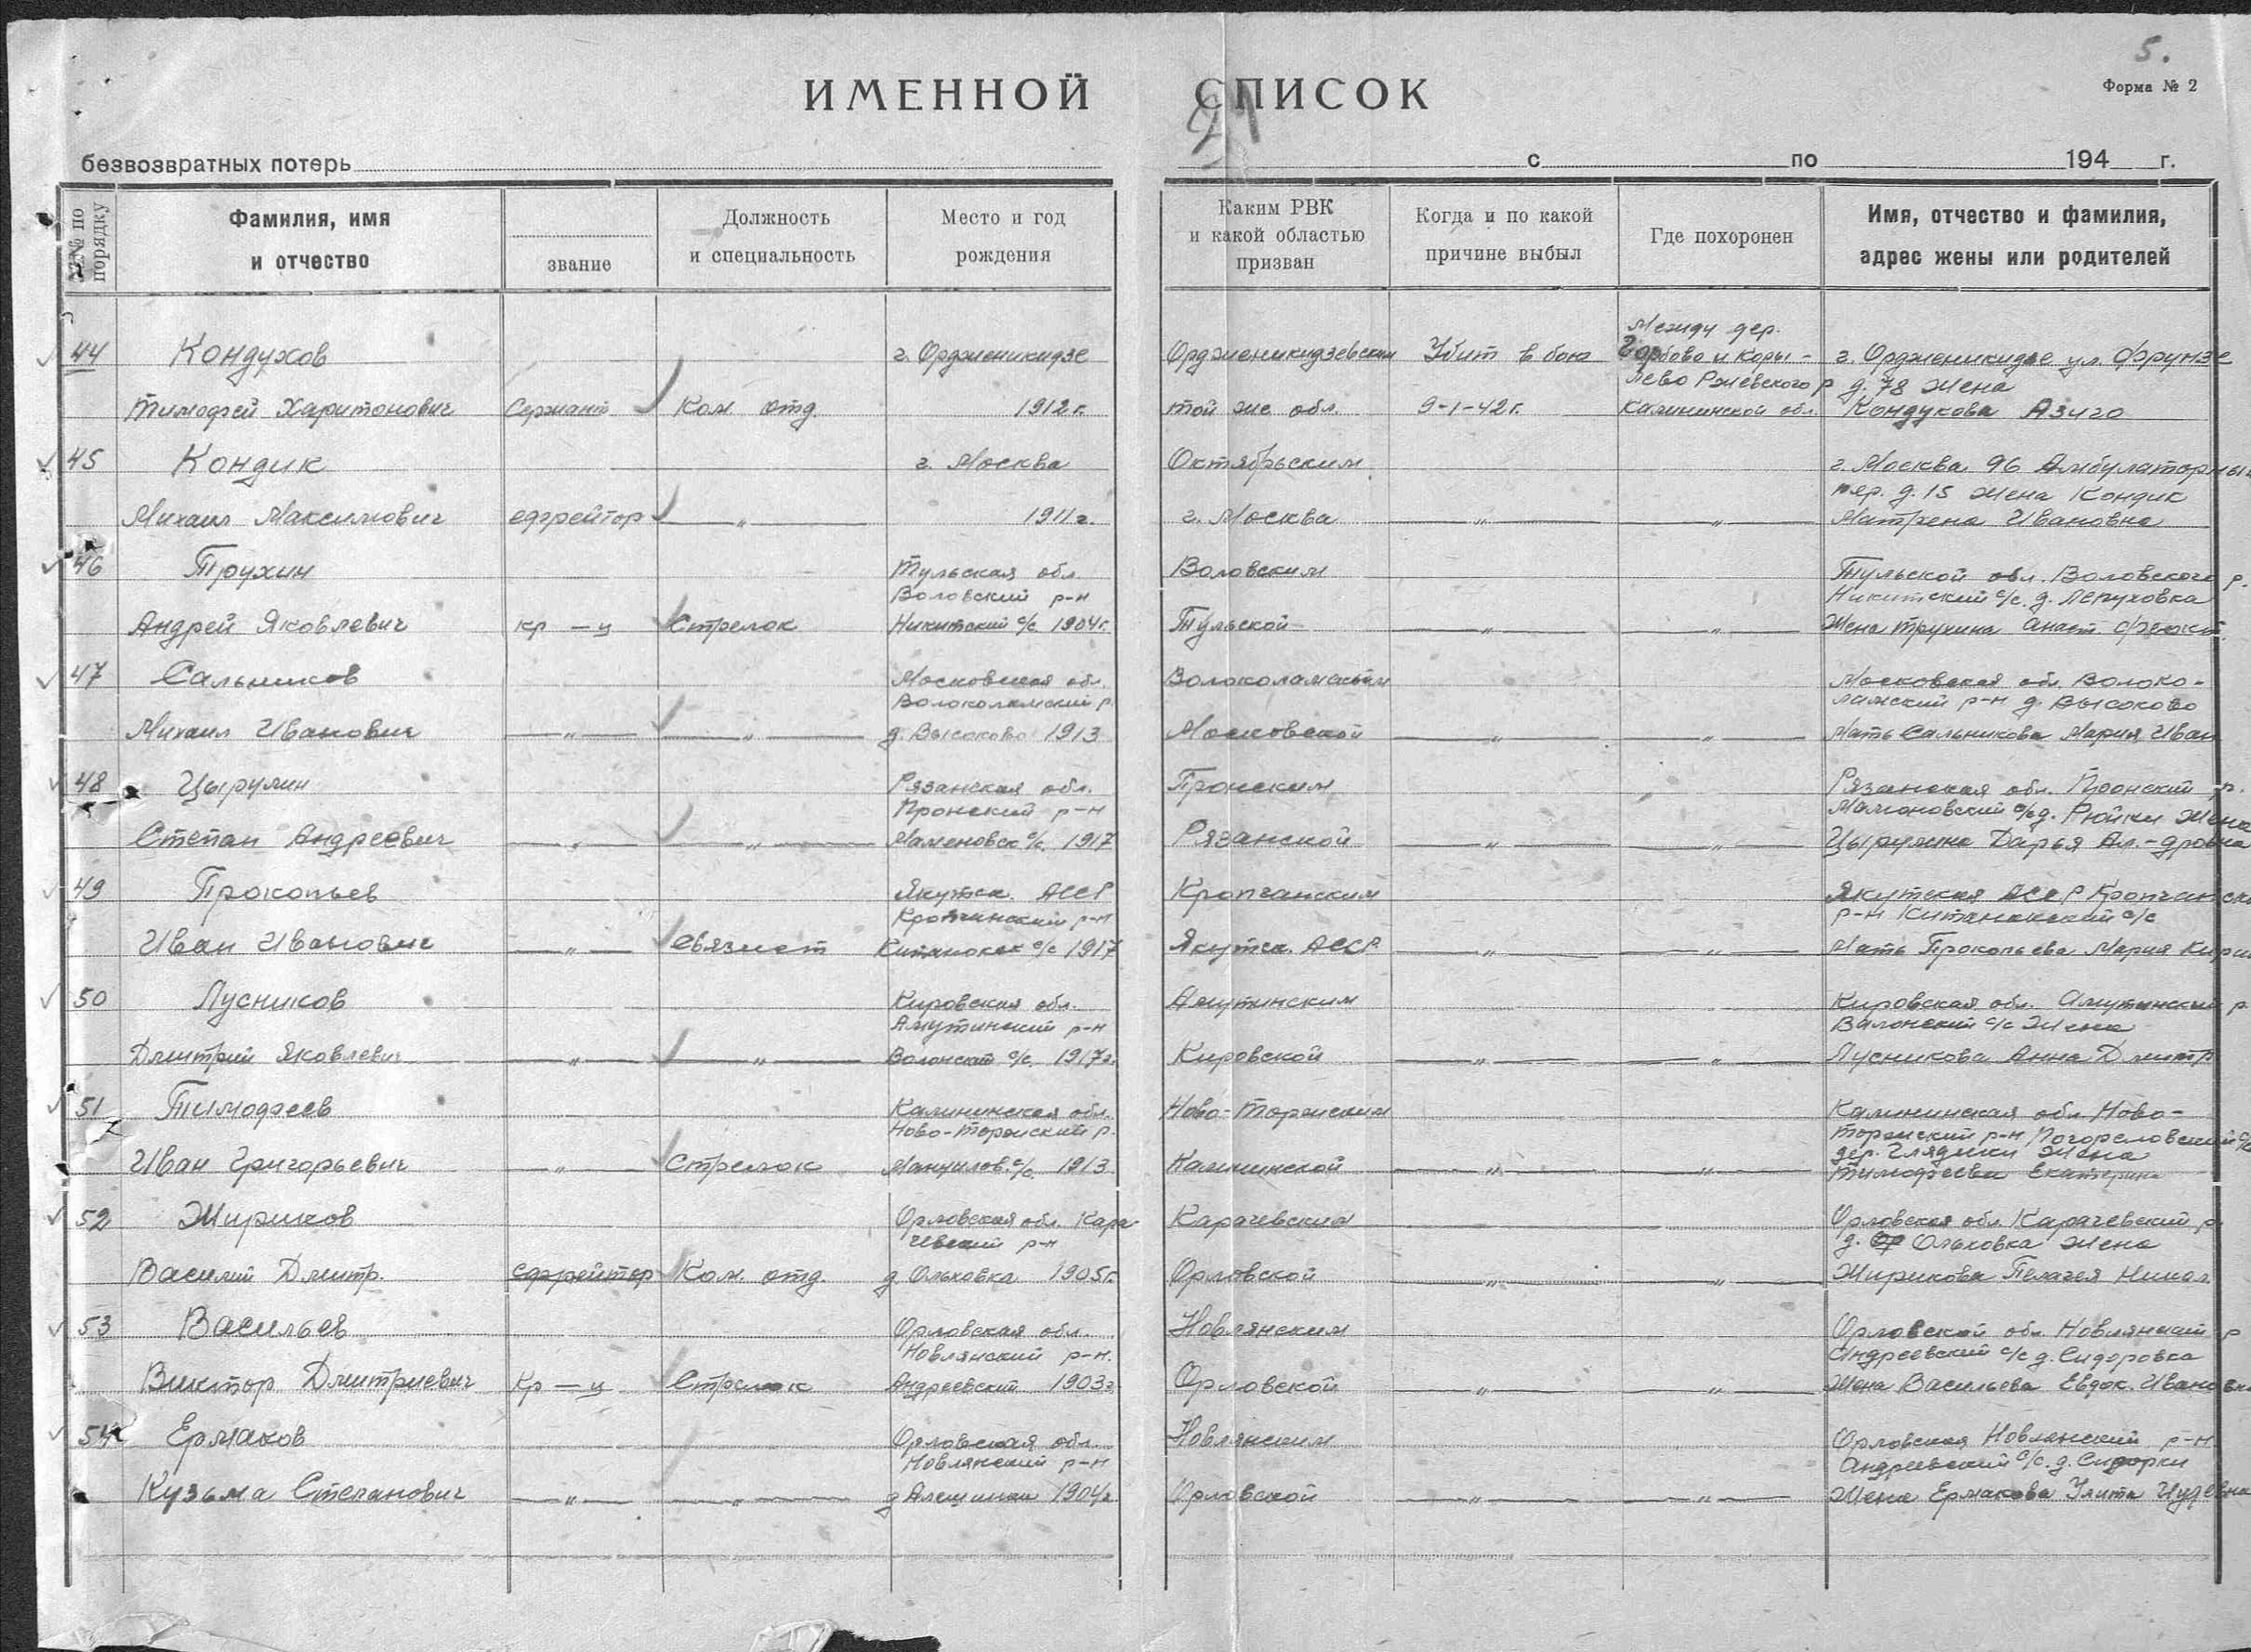 5.
Форма № 2
ИМЕННОЙ СПИСОК
безвозвратных потерь с по 194 г.
№№ по порядку
Фамилия, имя и отчество
звание
Должность и специальность
Место и год рождения
Каким РВК и какой областью призван
Когда и по какой причине выбыл
Где похоронен
Имя, отчество и фамилия, адрес жены или родителей
Между дер.
44 Кондухов г. Орджоникидзе Орджоникидзевским Убит в бою Горбово и Коры- г. Орджоникидзе ул. Фрунзе
лево Ржевского р д. 78 жена
Тимофей Харитонович Сержант Ком. отд. 1912 г. той же обл. 9-1-42 г. Калининской обл. Кондукова Азиго
45 Кондик г. Москва Октябрьским г. Москва 96 Амбулаторный
пер. д. 15 жена Кондик
Михаил Максимович ефрейтор —„— 1911 г. г. Москва —„— —„— Матрена Ивановна
46 Трухин Тульская обл. Воловским Тульской обл. Воловского р.
Воловский р-н Никитский с/с. д. Лепуховка
Андрей Яковлевич кр-ц Стрелок Никитский с/с. 1904 г. Тульской —„— —„— Жена Трухина Анаст.
47 Сальников Московская обл. Волоколамским Московская обл. Волоко-
Волоколамский р. ламский р-н д. Высоково
Михаил Иванович —„— —„— д. Высоково 1913 Московской —„— —„— Мать Сальникова Мария Иван
48 Цырулин Рязанская обл. Пронским Рязанская обл. Пронский р.
Пронский р-н Мамоновский с/с д. Жена
Степан Андреевич —„— —„— Маменовск с/с. 1917 Рязанской —„— —„— Цырулина Дарья Ал.-дровна
49 Прокопьев Якутск. АССР Кропчанским Якутская АССР
Кропчинский р-н р-н с/с
Иван Иванович —„— Связист с/с 1917 Якутск. АССР —„— —„— Мать Прокопьева Мария
50 Лусников Кировская обл. Амутинским Кировская обл. Амутинский р
Амутинский р-н Валонский с/с Жена
Дмитрий Яковлевич —„— —„— Волонский с/с. 1917 г. Кировской —„— —„— Лусникова Анна Дмитр
51 Тимофеев Калининская обл. Ново-Торжским Калининская обл. Ново-
Ново-Торжский р. торжский р-н Погореловский с/с
дер. Глядики Жена
Иван Григорьевич —„— Стрелок Мануилов. с/с. 1913 Калининской —„— —„— Тимофеева Екатерина
52 Жириков Орловская обл. Кара- Карачевским Орловская обл. Карачевский р
чевский р-н д. Ольховка жена
Василий Дмитр. ефрейтор Ком. отд. д Ольховка 1905 г. Орловской —„— —„— Жирикова Пелагея Никол.
53 Васильев Орловская обл. Новлянским Орловской обл. Новлянский р
Новлянский р-н. Андреевский с/с д. Сидоровка
Виктор Дмитриевич Кр-ц Стрелок Андреевский 1903 г. Орловской —„— —„— Жена Васильева Евдок. Ивановна
54 Ермаков Орловская обл. Новлянским Орловская Новлянский р-н
Новлянский р-н Андреевский с/с. д. Сидорки
Кузьма Степанович —„— —„— д 1904 г Орловской —„— —„— Жена Ермакова Улита